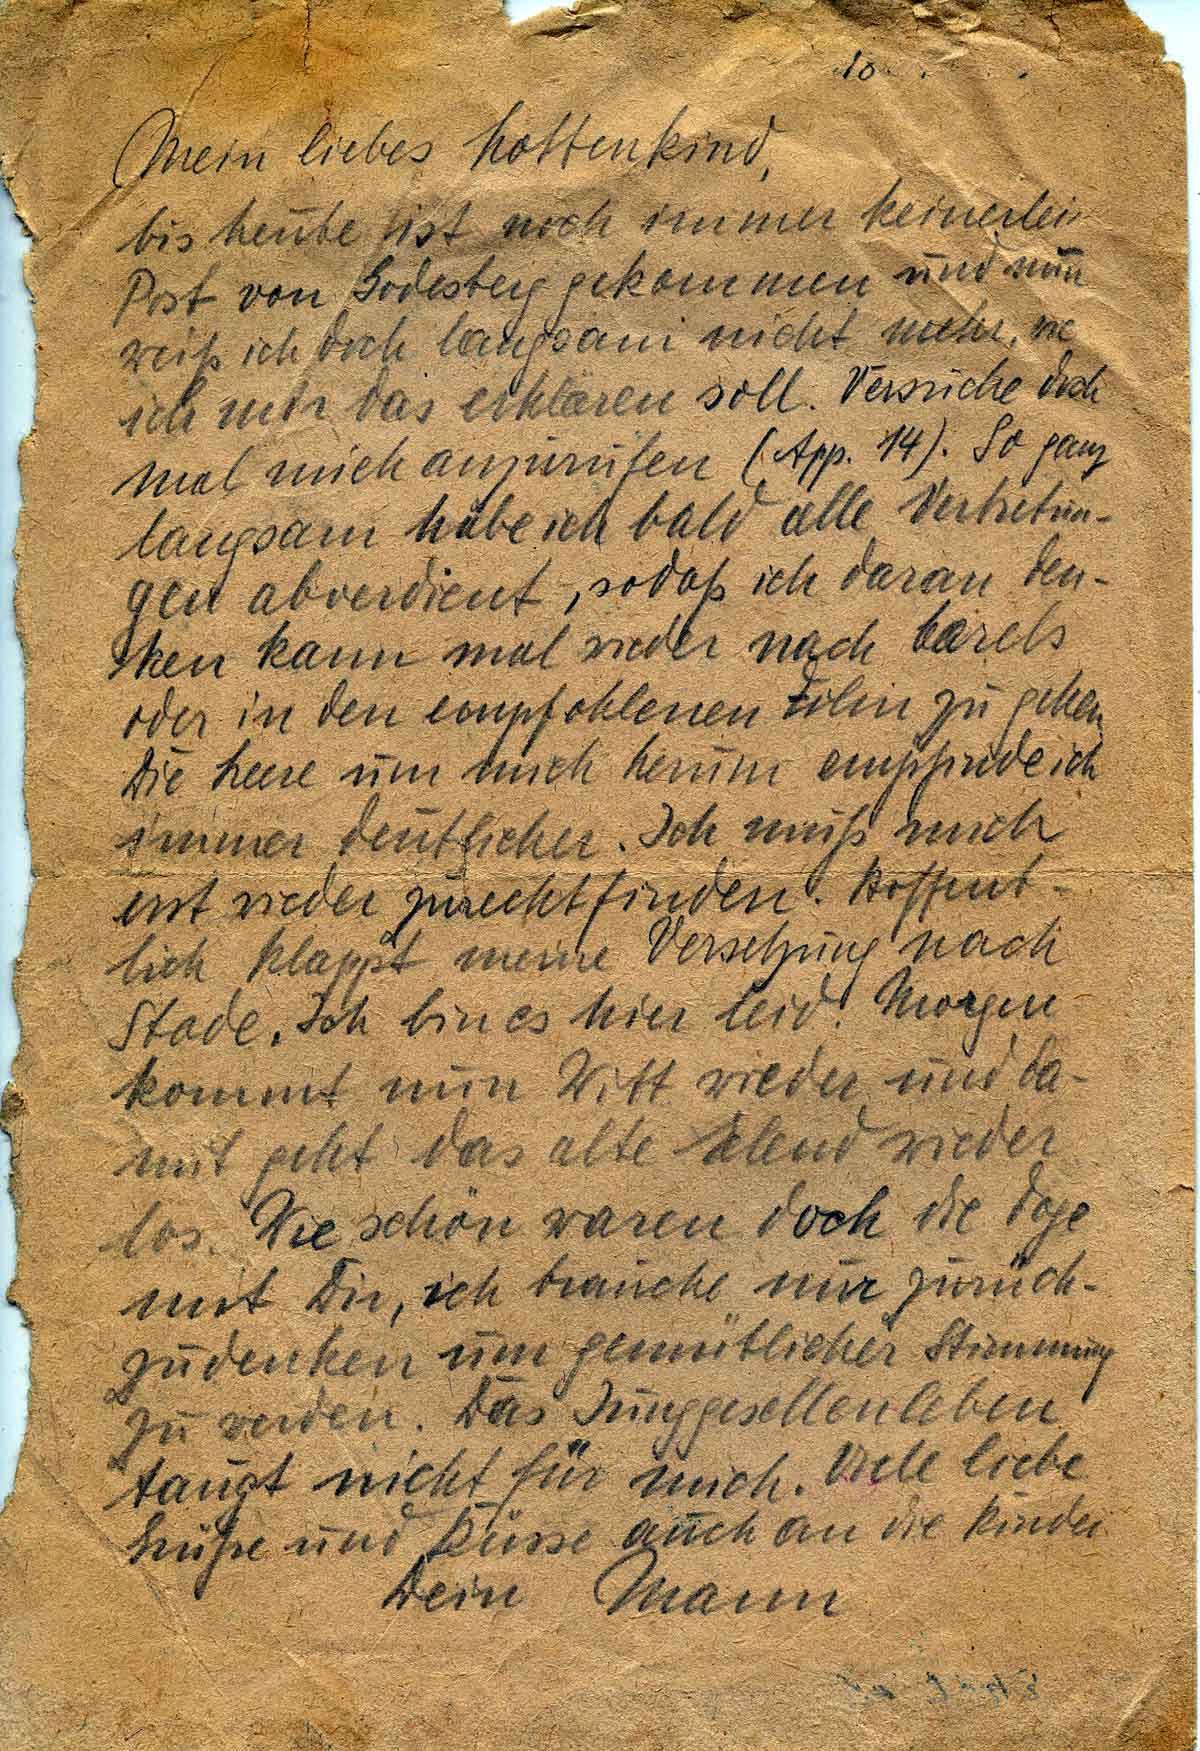 10
Mein liebes Hottenkind,
bis heute ist noch immer keinerlei
Post von Godesberg gekommen und nun
weiß ich doch langsam nicht mehr, wie
ich mir das erklären soll. Versuche doch
mal mich anzurufen (App. 14). So ganz
langsam habe ich bald alle Vertretun-
gen abverdient, sodaß ich daran den-
ken kann mal wieder nach Barels
oder in den empfohlenen Film zu gehen
Die Leere um mich herum empfinde ich
immer deutlicher. Ich muß mich
erst wieder zurechtfinden. Hoffent-
lich klappt meine Versetzung nach
Stade. Ich bin es hier leid! Morgen
kommt nun Witt wieder und da-
mit geht das alte Elend wieder
los. Wie schön waren doch die Tage
mit Dir, ich brauche nur zurück-
zudenken um gemütlicher Stimmung
zu werden. Das Junggesellenleben
taugt nicht für mich. Viele liebe
Grüße und Küsse auch an die Kinder
Dein Mann